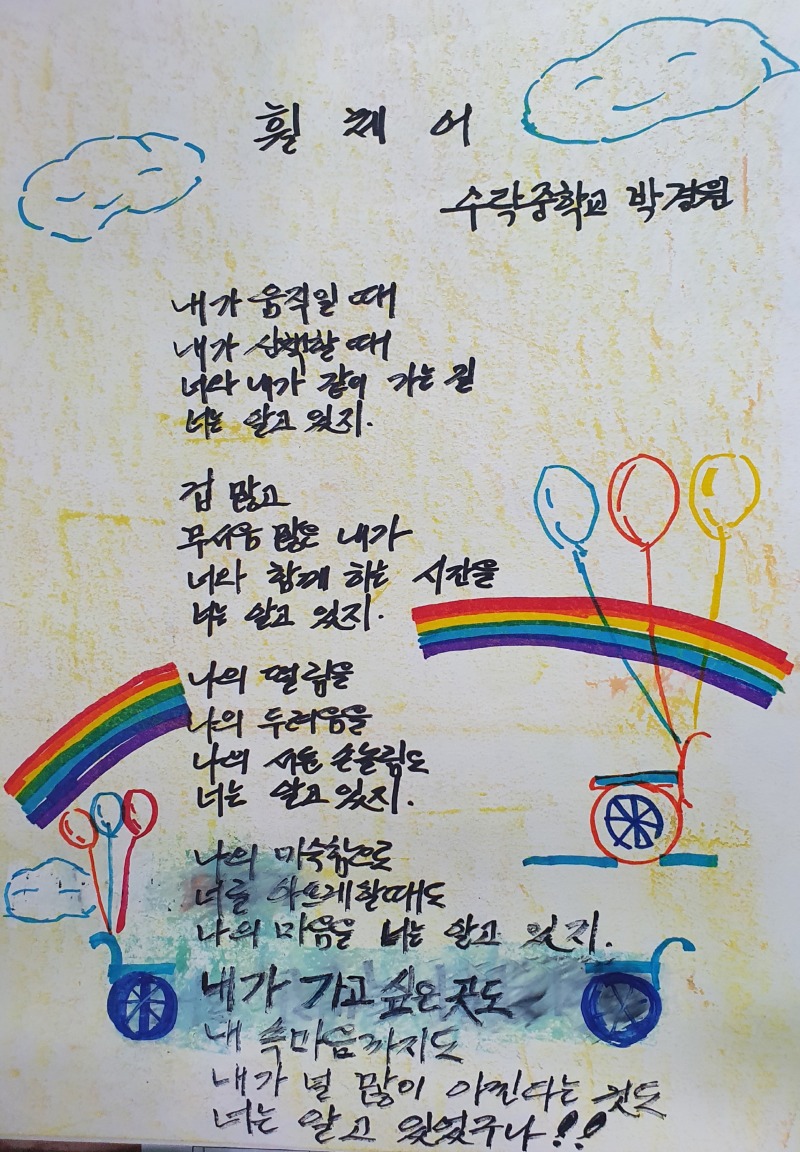 휠 체 어
수락중학교 박경원
내가 움직일 때
내가 산책할 때
너와 내가 같이 가는 길
너는 알고 있지.
겁 많고
무서움 많은 내가
너와 함께 하는 시간을
너는 알고 있지.
나의 떨림을
나의 두려움을
나의 서툰 손놀림도
너는 알고 있지.
나의 미숙함으로
너를 아프게할때도
나의 마음을 너는 알고 있지.
내가 가고 싶은곳도
내 속마음까지도
내가 널 많이 아낀다는 것도
너는 알고 있었구나!!